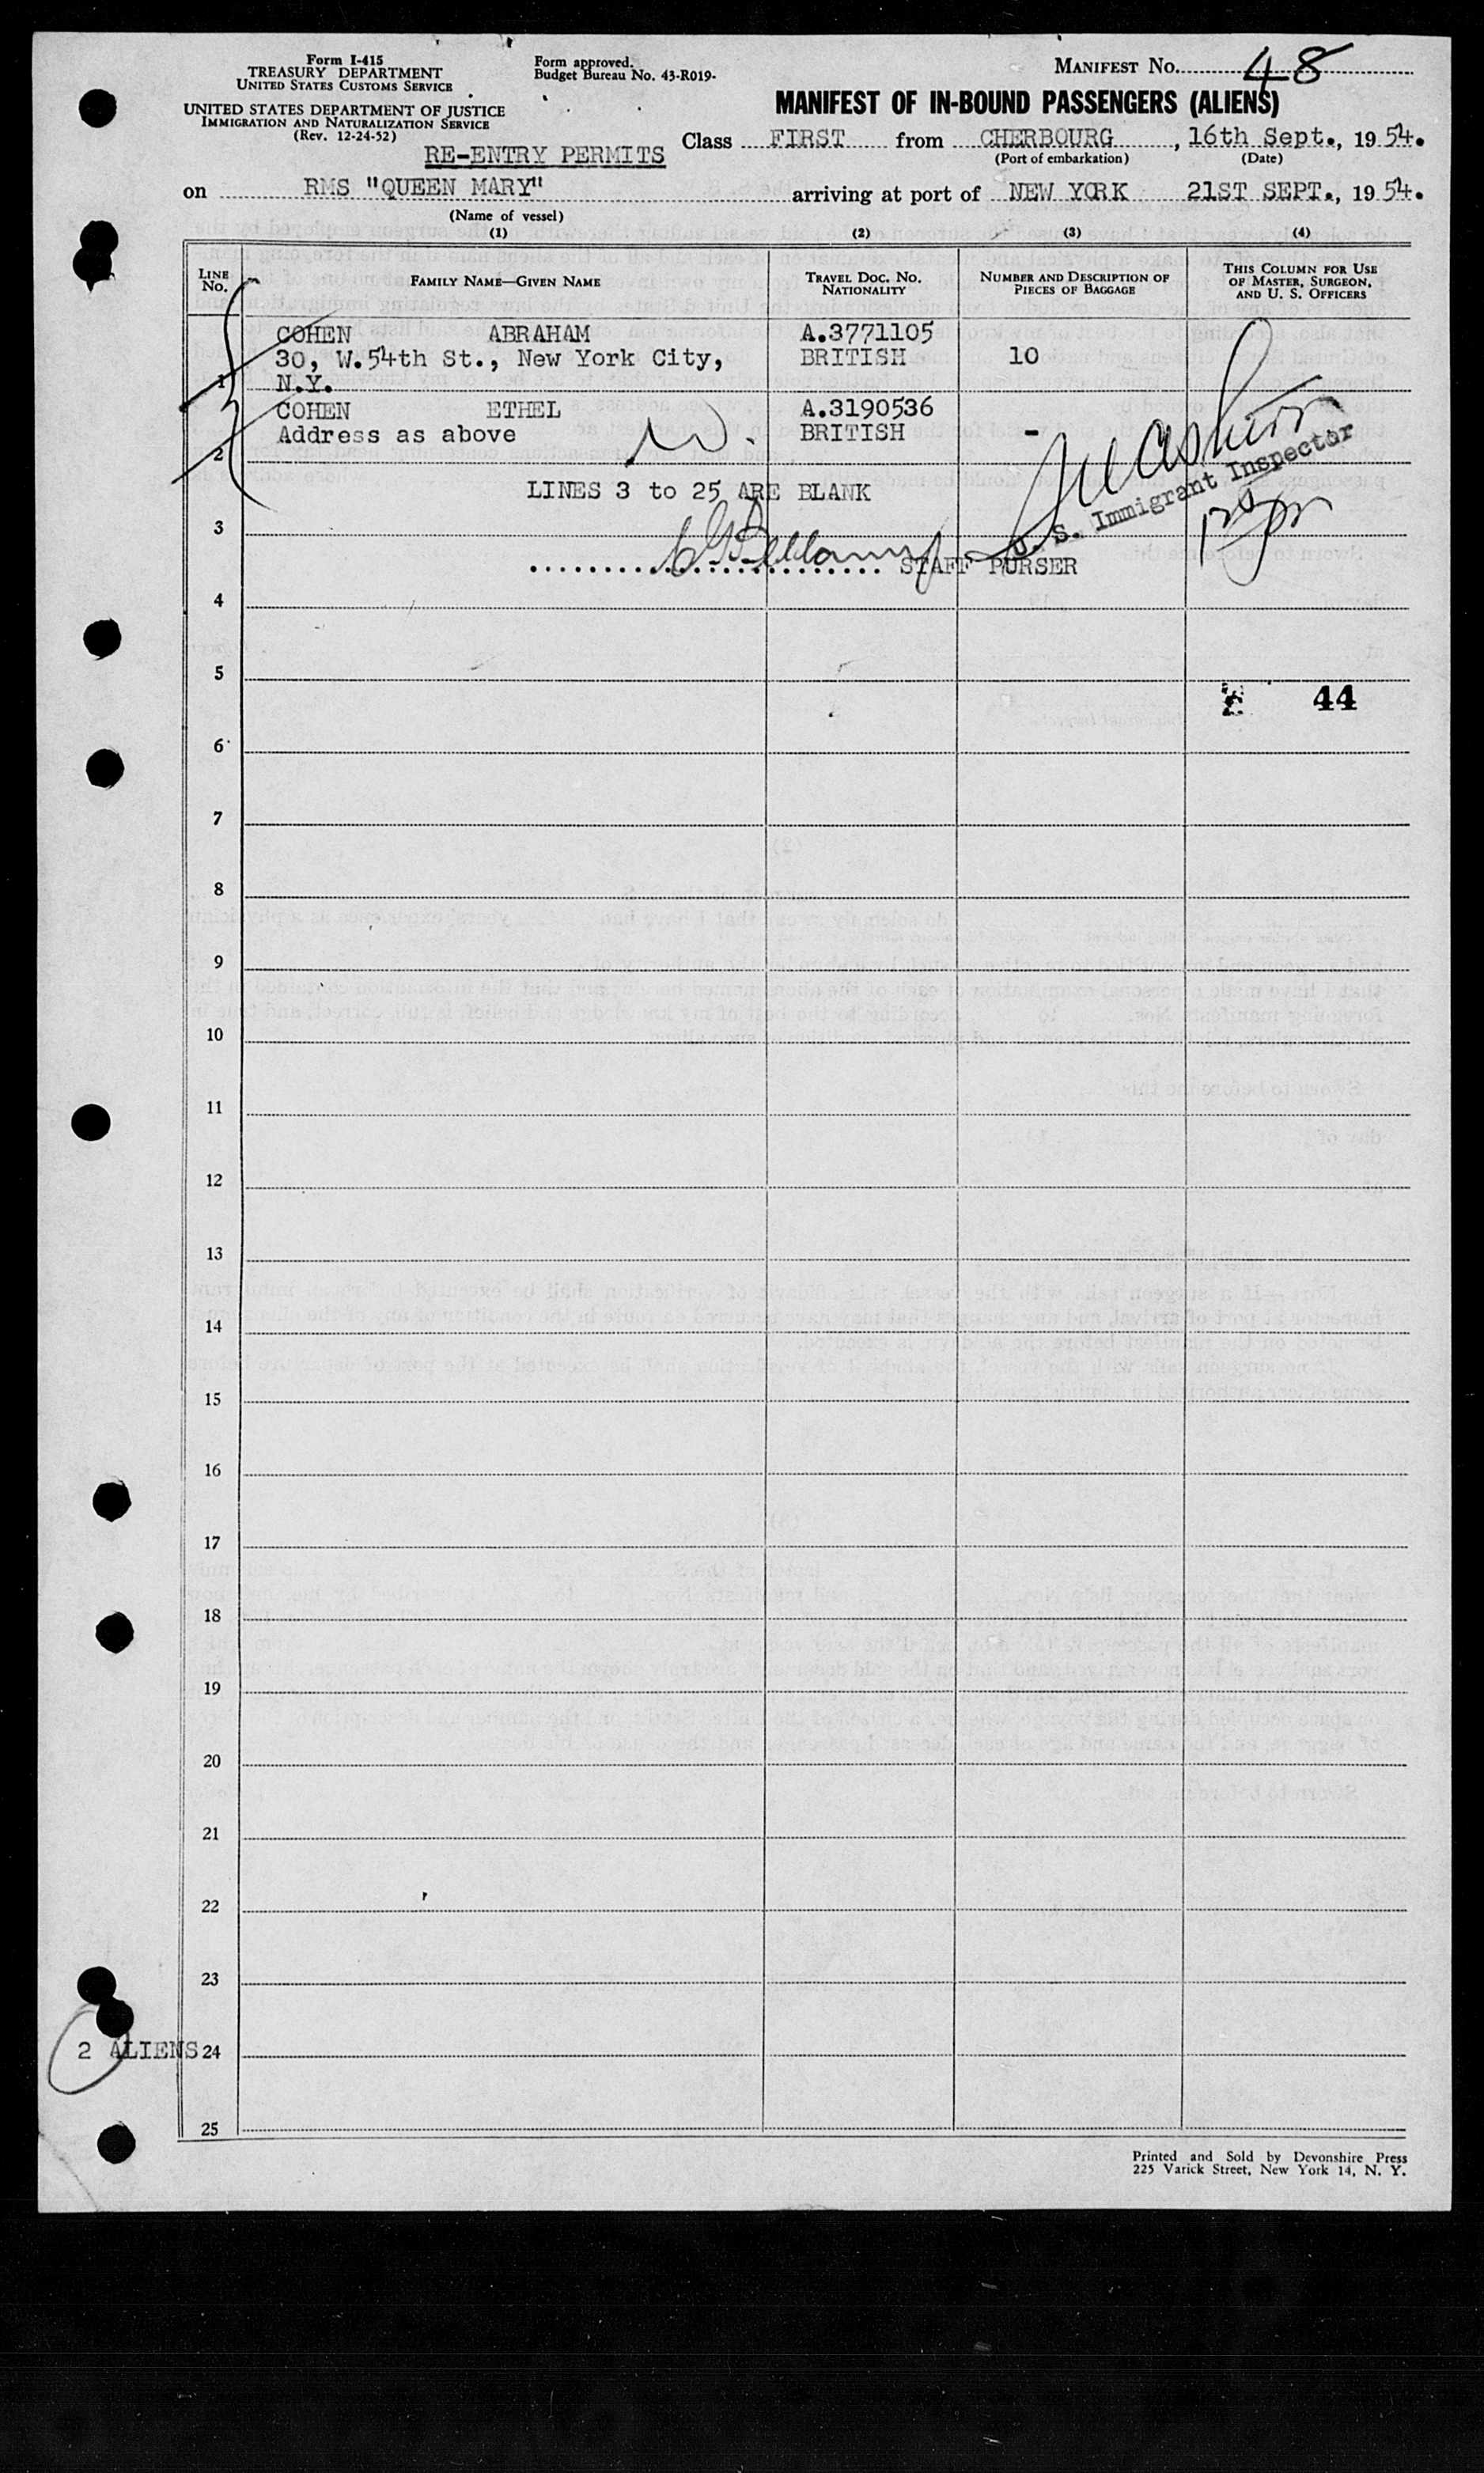 Form I-415
TREASURY DEPARTMENT
UNITED STATES CUSTOMS SERVICE
UNITED STATES DEPARTMENT OF JUSTICE
IMMIGRATION AND NATURALIZATION SERVICE
(Rev. 12-24-52)
Form approved.
Budget Bureau No. 43-R019-
MANIFEST NO. 48
MANIFEST OF IN-BOUND PASSENGERS (ALIENS)
RE-ENTRY PERMITS
Class FIRST from CHERBOURG, 16th Sept., 1954.
(Port of embarkation) (Date)
on RMS "QUEEN MARY" arriving at port of NEW YORK 21ST SEPT., 1954.
(Name of vessel)
(1) (2) (3) (4)
LINE NO.
FAMILY NAME—GIVEN NAME
TRAVEL DOC. NO. NATIONALITY
NUMBER AND DESCRIPTION OF PIECES OF BAGGAGE
THIS COLUMN FOR USE OF MASTER, SURGEON, AND U. S. OFFICERS
COHEN ABRAHAM A.3771105
30, W.54th St., New York City, BRITISH 10
1 N.Y.
COHEN ETHEL A.3190536
Address as above BRITISH -
2
LINES 3 to 25 ARE BLANK
U. S. Immigrant Inspector
3
C G Bellamy STAFF PURSER
4
5
44
6
7
8
9
10
11
12
13
14
15
16
17
18
19
20
21
22
23
2 ALIENS 24
25
Printed and Sold by Devonshire Press
225 Varick Street, New York 14, N. Y.